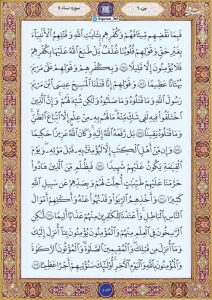 سوره نساء ٤
جزء ٦
فَبِمَا نَقْضِهِم مِّيثَاقَهُمْ وَكُفْرِهِم بِـَٔايَٰتِ ٱللَّهِ وَقَتْلِهِمُ ٱلْأَنۢبِيَآءَ
بِغَيْرِ حَقٍّ وَقَوْلِهِمْ قُلُوبُنَا غُلْفٌۢ بَلْ طَبَعَ ٱللَّهُ عَلَيْهَا بِكُفْرِهِمْ
فَلَا يُؤْمِنُونَ إِلَّا قَلِيلًا ١٥٥ وَبِكُفْرِهِمْ وَقَوْلِهِمْ عَلَىٰ مَرْيَمَ
بُهْتَٰنًا عَظِيمًا ١٥٦ وَقَوْلِهِمْ إِنَّا قَتَلْنَا ٱلْمَسِيحَ عِيسَى ٱبْنَ مَرْيَمَ
رَسُولَ ٱللَّهِ وَمَا قَتَلُوهُ وَمَا صَلَبُوهُ وَلَٰكِن شُبِّهَ لَهُمْ وَإِنَّ ٱلَّذِينَ
ٱخْتَلَفُوا۟ فِيهِ لَفِى شَكٍّ مِّنْهُ مَا لَهُم بِهِۦ مِنْ عِلْمٍ إِلَّا ٱتِّبَاعَ ٱلظَّنِّ
وَمَا قَتَلُوهُ يَقِينًۢا ١٥٧ بَل رَّفَعَهُ ٱللَّهُ إِلَيْهِ وَكَانَ ٱللَّهُ عَزِيزًا حَكِيمًا
١٥٨ وَإِن مِّنْ أَهْلِ ٱلْكِتَٰبِ إِلَّا لَيُؤْمِنَنَّ بِهِۦ قَبْلَ مَوْتِهِۦ وَيَوْمَ
ٱلْقِيَٰمَةِ يَكُونُ عَلَيْهِمْ شَهِيدًا ١٥٩ فَبِظُلْمٍ مِّنَ ٱلَّذِينَ هَادُوا۟
حَرَّمْنَا عَلَيْهِمْ طَيِّبَٰتٍ أُحِلَّتْ لَهُمْ وَبِصَدِّهِمْ عَن سَبِيلِ ٱللَّهِ
كَثِيرًا ١٦٠ وَأَخْذِهِمُ ٱلرِّبَوٰا۟ وَقَدْ نُهُوا۟ عَنْهُ وَأَكْلِهِمْ أَمْوَٰلَ
ٱلنَّاسِ بِٱلْبَٰطِلِ وَأَعْتَدْنَا لِلْكَٰفِرِينَ مِنْهُمْ عَذَابًا أَلِيمًا ١٦١ لَّٰكِنِ
ٱلرَّٰسِخُونَ فِى ٱلْعِلْمِ مِنْهُمْ وَٱلْمُؤْمِنُونَ يُؤْمِنُونَ بِمَآ أُنزِلَ إِلَيْكَ
وَمَآ أُنزِلَ مِن قَبْلِكَ وَٱلْمُقِيمِينَ ٱلصَّلَوٰةَ وَٱلْمُؤْتُونَ ٱلزَّكَوٰةَ
وَٱلْمُؤْمِنُونَ بِٱللَّهِ وَٱلْيَوْمِ ٱلْـَٔاخِرِ أُو۟لَٰٓئِكَ سَنُؤْتِيهِمْ أَجْرًا عَظِيمًا ١٦٢
١٠٣